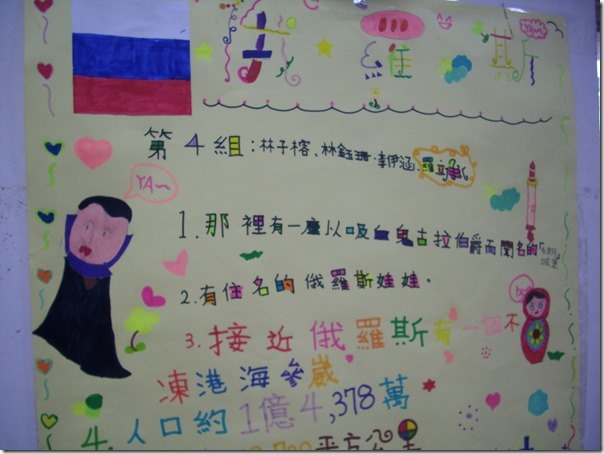 YA~
第4組:林子榕、林鈺珊.李伊涵.羅
1.那裡有一座以吸血鬼古拉伯爵而聞名的
城堡
2.有住名的俄羅斯娃娃.
YA~
3.接近俄羅斯有一個不
凍港海參崴
4.人口約1億4,378萬
平方公里